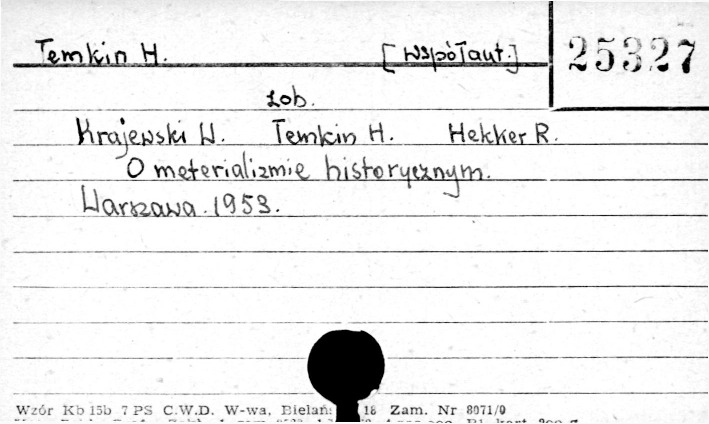 Temkin H. [współaut.] 25327
zob.
Krajewski W. Temkin H. Hekker R.
O meterializmie historycznym.
Warszawa. 1953.
Wzór Kb 15b 7 PS C.W.D. W-wa, Bielań: 18 Zam. Nr 8071/0